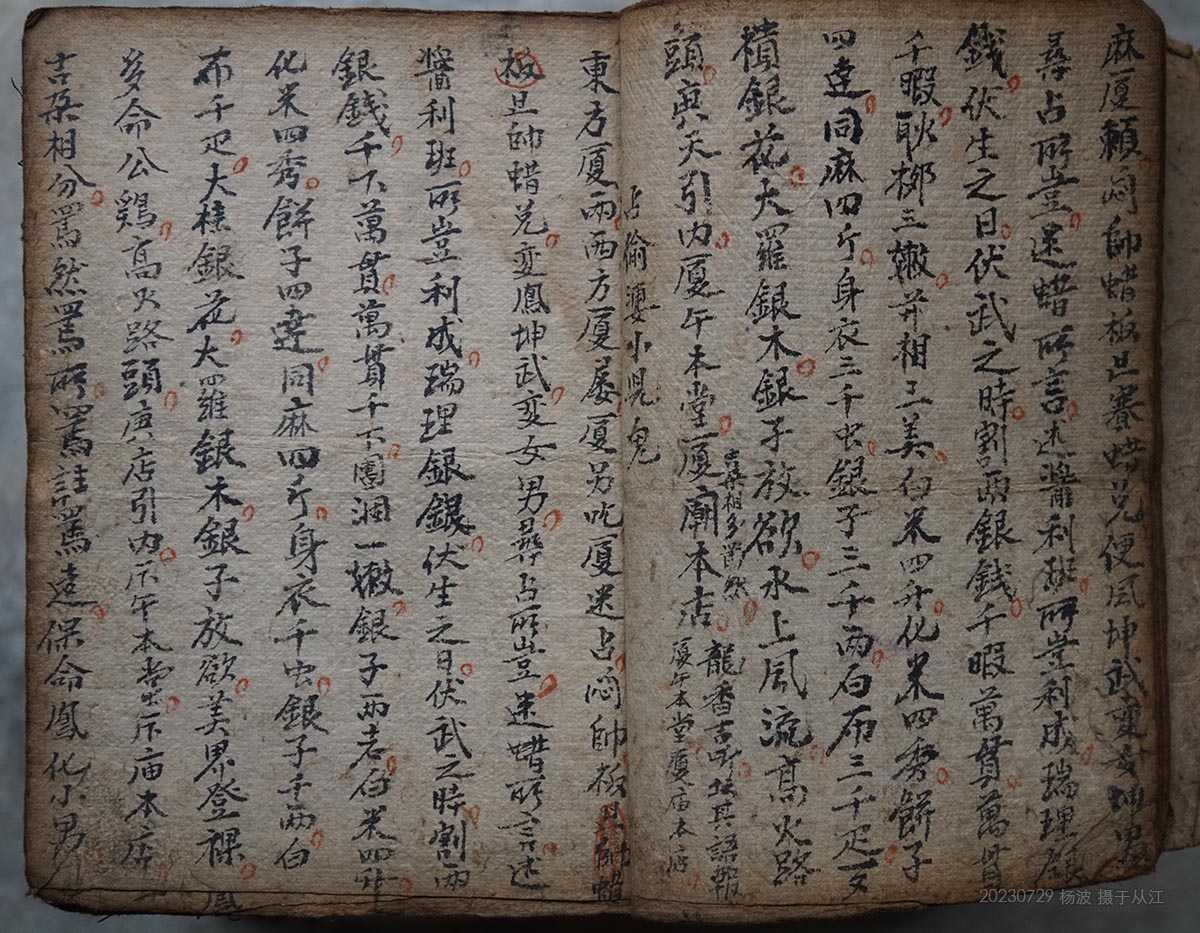 麻厦賴 帥蜡板旦審蜡兑便風坤武重女坤男
彞占所豈迷蜡所言迷醬利班所豈利成瑞理銀
錢伏生之日伏武之時割両銀錢千暇萬貫萬貫
千暇耿榔三嫩并相三美白米四升化米四秀餅子
四達同麻四斤身衣三千虫銀子三千両白布三千疋
積銀花大羅銀木銀子放欲水上風流高火路
頭庚天引内厦午本堂厦廟本店
吉朶相多
龍香古所
厦午本堂厦庙本店
占偷婆小兒鬼
東方厦両西方厦屡厦另吃厦迷占 帥板旦
板旦帥蜡兑变鳳坤武变女男彞占所豈迷蜡所言迷
醬利班所豈利成瑞理銀銀伏生之日伏武之時割両
銀錢千下萬貫萬貫千下團洄一嫩銀子両老白米四升
化米四秀餅子四達同麻四斤身衣千虫銀子千両白
布千疋大桂銀花大羅銀木銀子放欲美界登裸鳳
多命公鶏高火路頭庚店引内斥午本堂斥庙本店
吉朶相分罵然罵所罵註罵遠保命鳳化小男
20230729 杨波 摄于从江